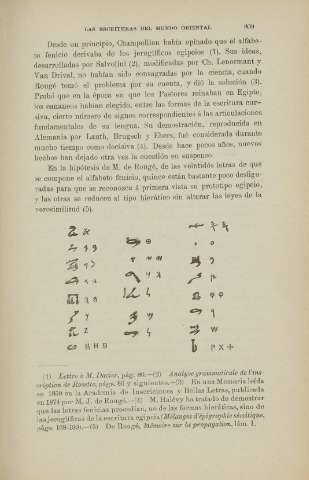 LAS ESCRITURAS DEL MUNDO ORIENTAL
Desde un principio, Champollion había opinado que el alfabe-
to fenicio derivaba de los jeroglíficos egipcios (1). Sus ideas,
desarrolladas por Salvolini (2), modificadas por Ch. Lenormant y
Van Drival, no habían sido consagradas por la ciencia, cuando
Rougé tomó el problema por su cuenta, y dió la solución (3).
Probó que en la época en que los Pastores reinaban en Egipto,
los cananeos habían elegido, entre las formas de la escritura cur-
siva, cierto número de signos correspondientes á las articulaciones
fundamentales de su lengua. Su demostración, reproducida en
Alemania por Lauth, Brugsch y Ebers, fué considerada durante
mucho tiempo como decisiva (4). Desde hace pocos años, nuevos
hechos han dejado otra vez la cuestión en suspenso.
En la hipótesis de M. de Rougé, de las veintidós letras de que
se compone el alfabeto fenicio, quince están bastante poco desfigu-
radas para que se reconozca á primera vista su prototipo egipcio,
y las otras se reducen al tipo hierático sin alterar las leyes de la
verosimilitud (5).
(1) Lettre à M. Dacier, pág. 80.—(2) Analyse grammaticale de l'ins-
cription de Rosette, págs. 86 y siguientes.—(3) En una Memoria leída
en 1859 en la Academia de Inscripciones y Bellas Letras, publicada
en 1874 por M. J. de Rougé.—(4) M. Halévy ha tratado de demostrar
que las letras fenicias procedían, no de las formas hieráticas, sino de
los jeroglíficos de la escritura egipcia (Mélanges d'épigraphie sémitique,
págs. 168-183).—(5) De Rougé, Mémoire sur la propagation, lám. I.